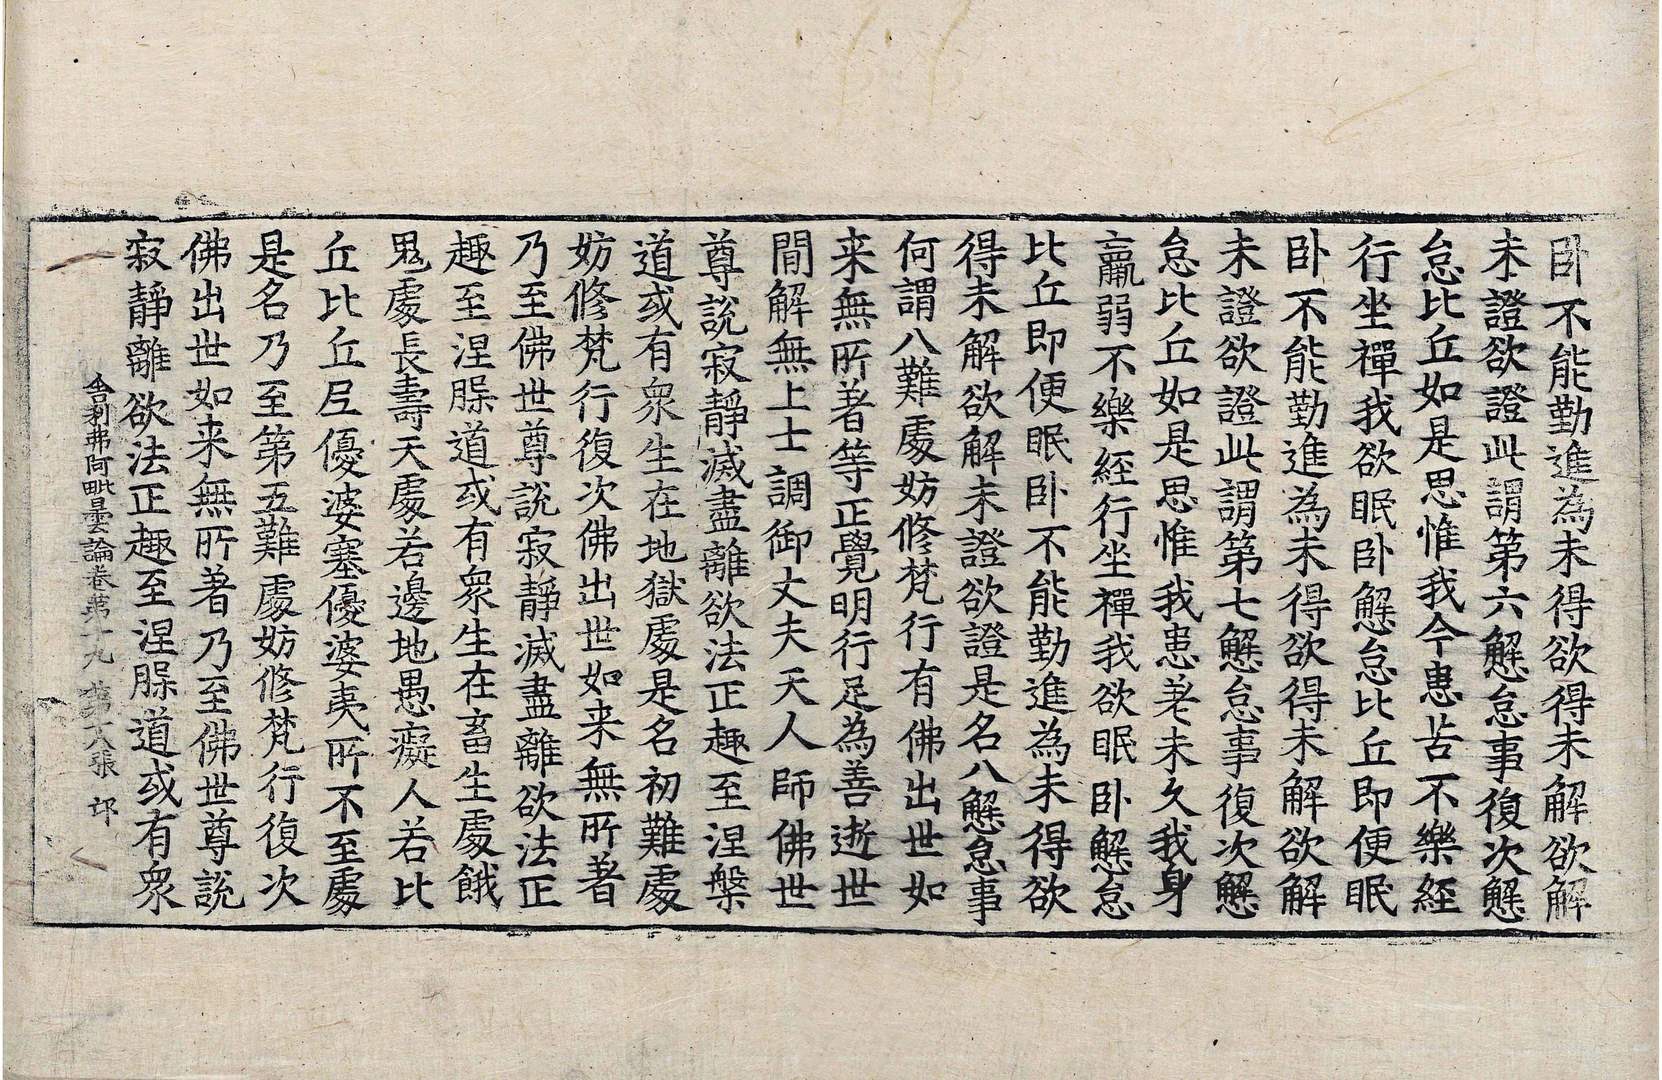 卧不能勤進為未得欲得未解欲解
未證欲證此謂第六懈怠事復次懈
怠比丘如是思惟我今患苦不樂經
行坐禪我欲眠卧懈怠比丘即便眠
卧不能勤進為未得欲得未解欲解
未證欲證此謂第七懈怠事復次懈
怠比丘如是思惟我患差未久我身
羸弱不樂經行坐禪我欲眠卧懈怠
比丘即便眠卧不能勤進為未得欲
得未解欲解未證欲證是名八懈怠事
何謂八難處妨修梵行有佛出世如
来無所著等正覺明行足為善逝世
間解無上士調御丈夫天人師佛世
尊說寂靜滅盡離欲法正趣至涅槃
道或有衆生在地獄處是名初難處
妨修梵行復次佛出世如来無所著
乃至佛世尊說寂靜滅盡離欲法正
趣至涅槃道或有衆生在畜生處餓
鬼處長壽天處若邊地愚癡人若比
丘比丘尼優婆塞優婆夷所不至處
是名乃至第五難處妨修梵行復次
佛出世如来無所著乃至佛世尊說
寂靜離欲法正趣至涅槃道或有衆
舍利弗阿毗曇論卷第十九 第十八張